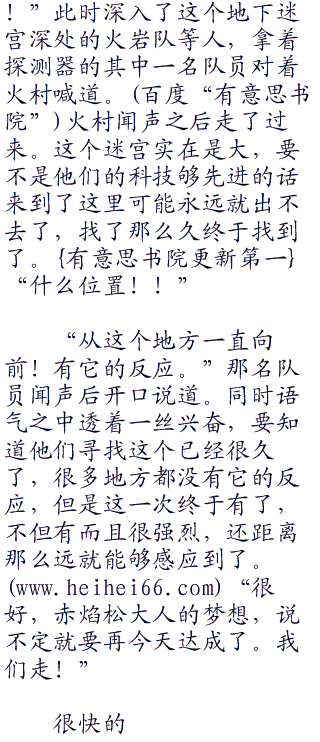 ！”此时深入了这个地下迷
宫深处的火岩队等人，拿着
探测器的其中一名队员对着
火村喊道。(百度“有意思书
院”)火村闻声之后走了过
来。这个迷宫实在是大，要
不是他们的科技够先进的话
来到了这里可能永远就出不
去了，找了那么久终于找到
了。{有意思书院更新第一}
“什么位置！！”
“从这个地方一直向
前！有它的反应。”那名队
员闻声后开口说道。同时语
气之中透着一丝兴奋，要知
道他们寻找这个已经很久
了，很多地方都没有它的反
应，但是这一次终于有了，
不但有而且很强烈，还距离
那么远就能够感应到了。
(www.heihei66.com)“很
好，赤焰松大人的梦想，说
不定就要再今天达成了。我
们走！”
很快的